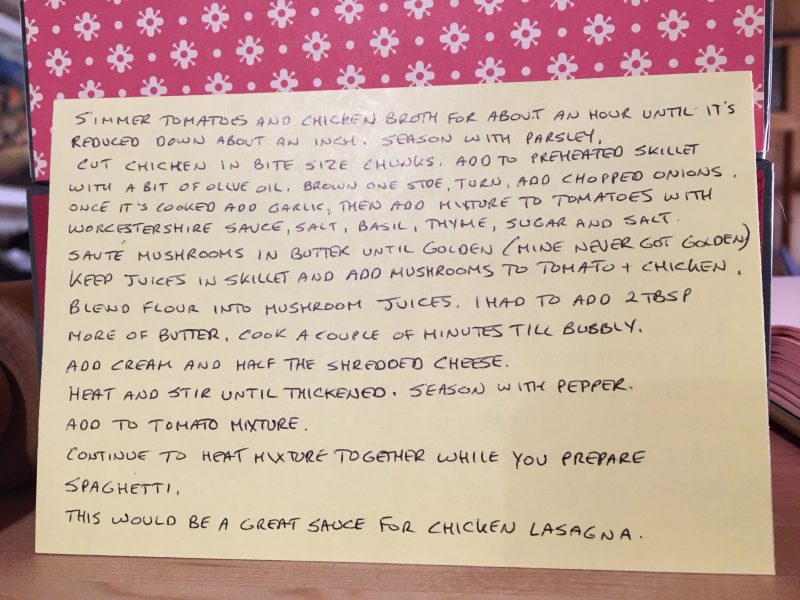 SIMMER TOMATOES AND CHICKEN BROTH FOR ABOUT AN HOUR UNTIL IT'S
REDUCED DOWN ABOUT AN INCH. SEASON WITH PARSLEY,
CUT CHICKEN IN BITE SIZE CHUNKS. ADD TO PREHEATED SKILLET
WITH A BIT OF OLIVE OIL. BROWN ONE SIDE, TURN, ADD CHOPPED ONIONS.
ONCE IT'S COOKED ADD GARLIC, THEN ADD MIXTURE TO TOMATOES WITH
WORCESTERSHIRE SAUCE, SALT, BASIL, THYME, SUGAR AND SALT.
SAUTÉ MUSHROOMS IN BUTTER UNTIL GOLDEN (MINE NEVER GOT GOLDEN)
KEEP JUICES IN SKILLET AND ADD MUSHROOMS TO TOMATO + CHICKEN.
BLEND FLOUR INTO MUSHROOM JUICES. I HAD TO ADD 2 TBSP
MORE OF BUTTER. COOK A COUPLE OF MINUTES TILL BUBBLY.
ADD CREAM AND HALF THE SHREDDED CHEESE.
HEAT AND STIR UNTIL THICKENED. SEASON WITH PEPPER.
ADD TO TOMATO MIXTURE.
CONTINUE TO HEAT MIXTURE TOGETHER WHILE YOU PREPARE
SPAGHETTI.
THIS WOULD BE A GREAT SAUCE FOR CHICKEN LASAGNA.